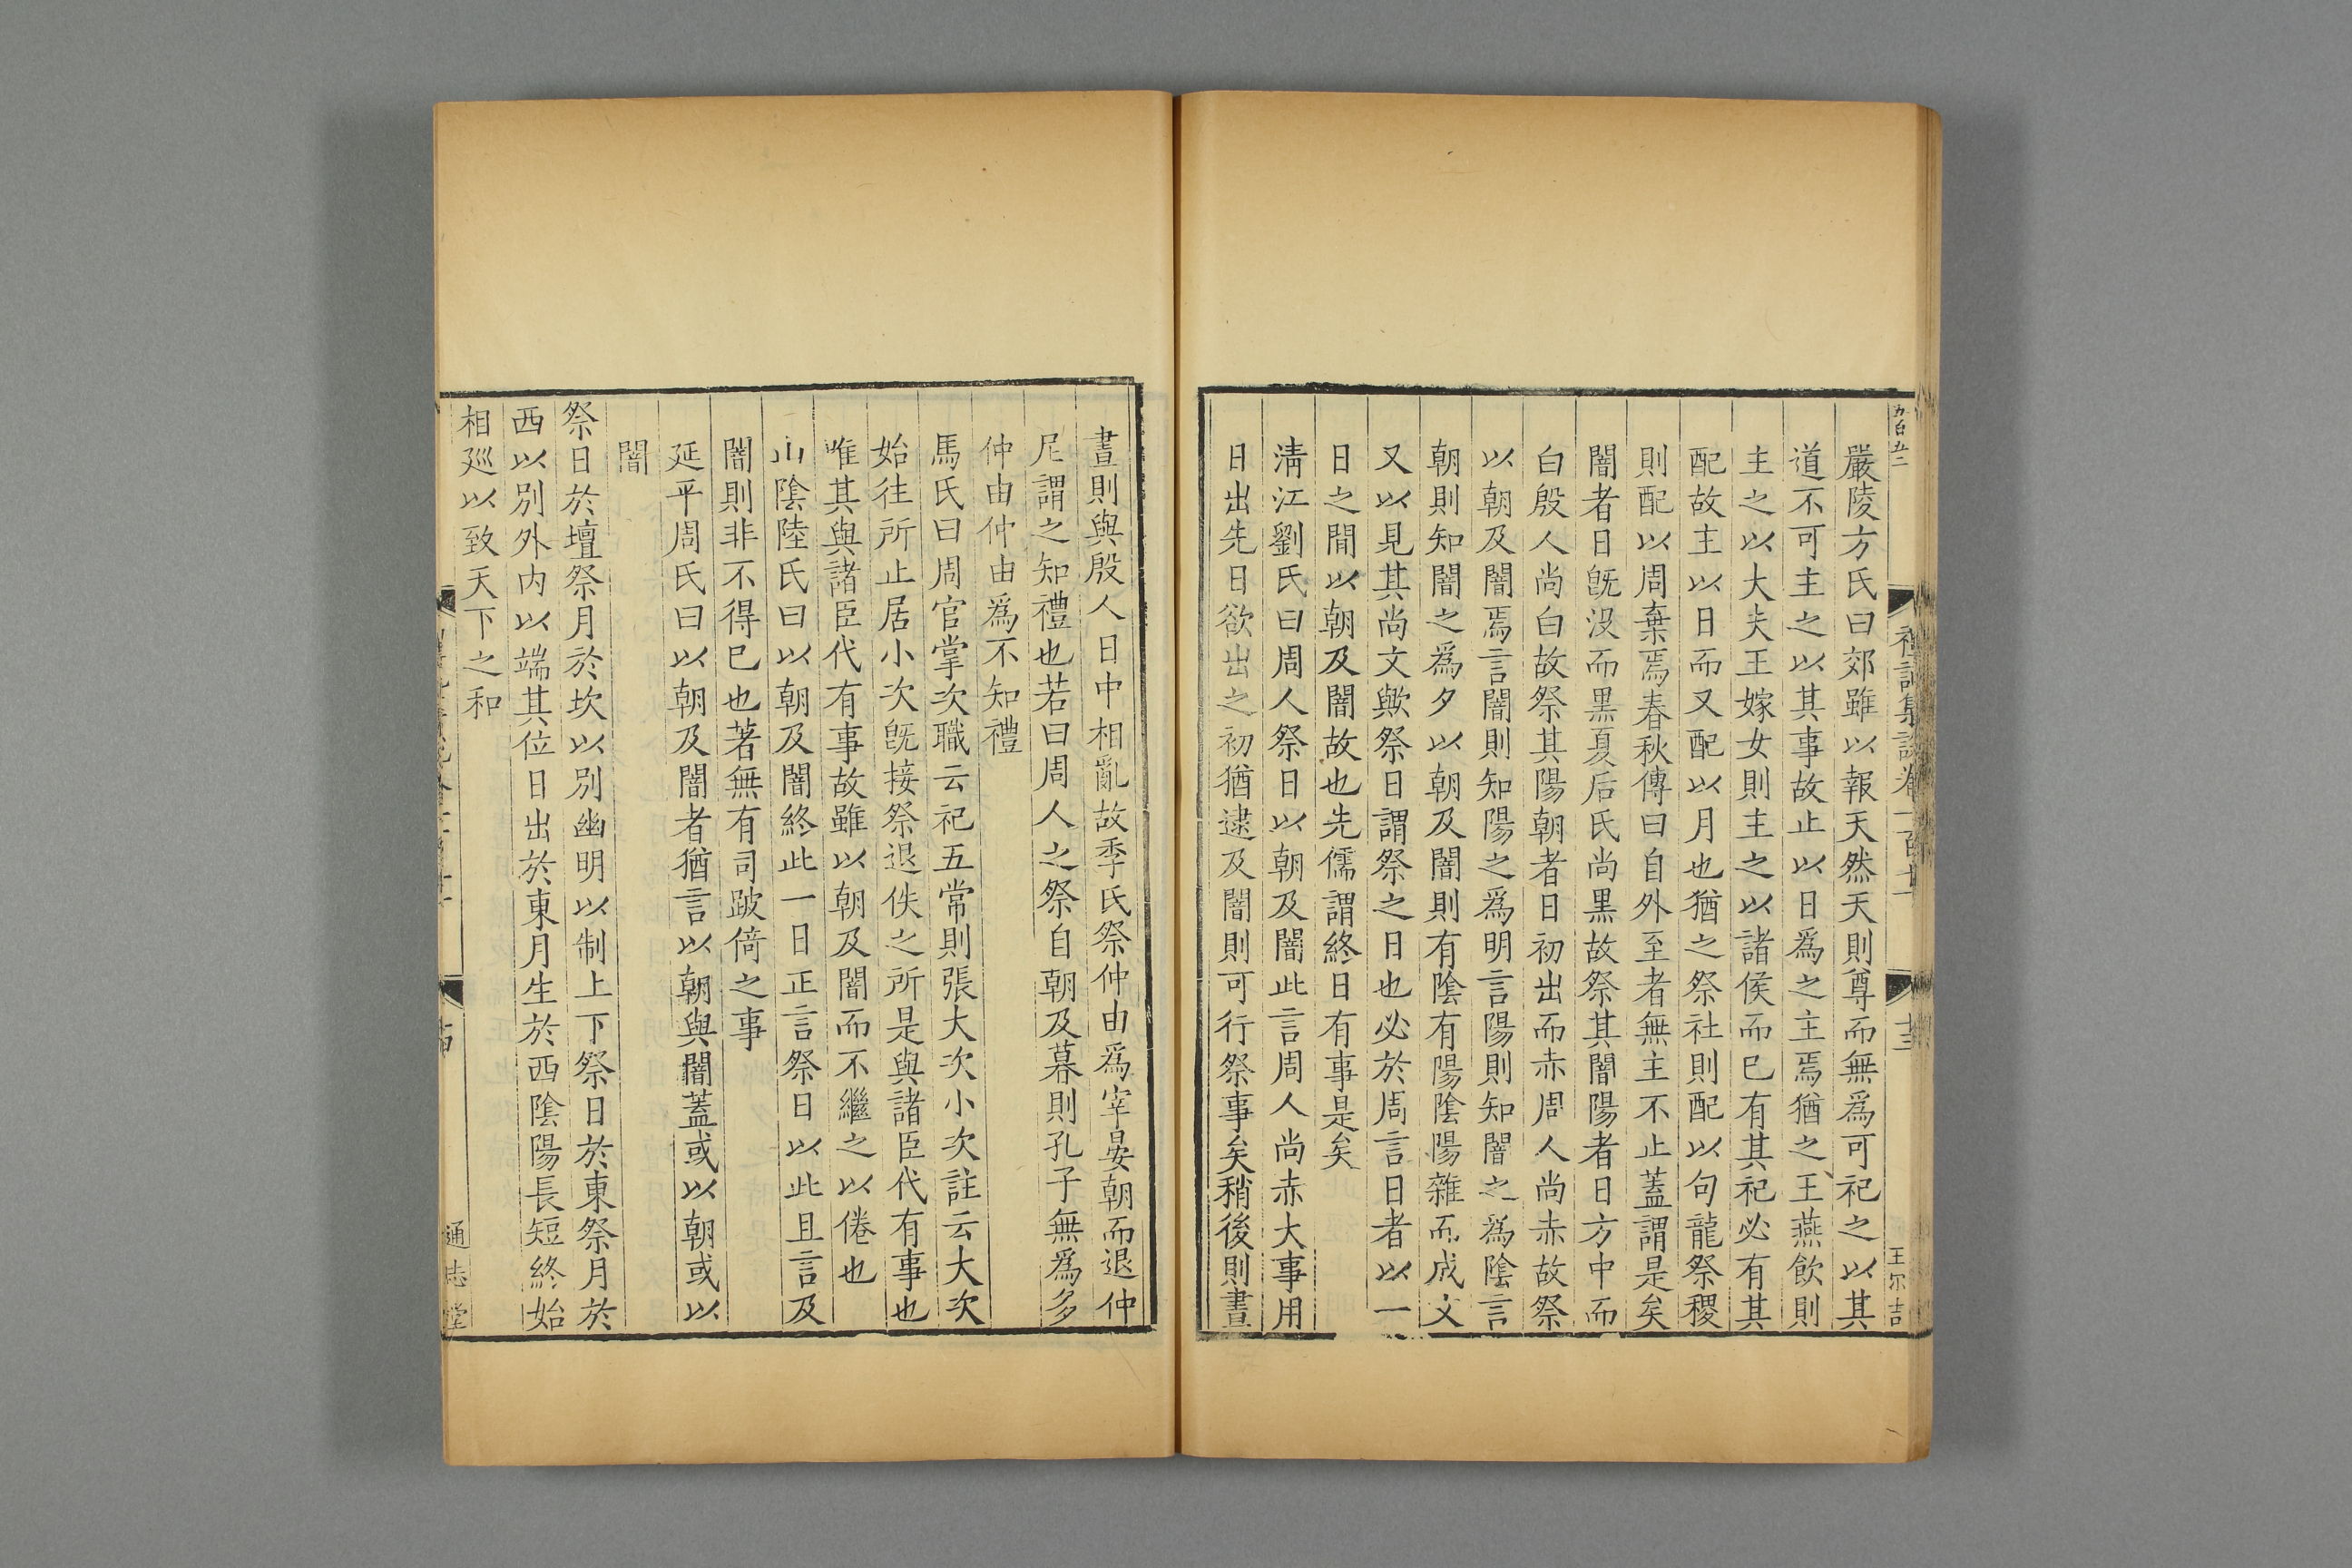 五百五二
禮記集說卷一百十一
十三
王尔吉
嚴陵方氏曰郊雖以報天然天則尊而無爲可祀之以其
道不可主之以其事故止以日爲之主焉猶之王燕飮則
主之以大夫王嫁女則主之以諸侯而已有其祀必有其
配故主以日而又配以月也猶之祭社則配以句龍祭稷
則配以周棄焉春秋傳曰自外至者無主不止蓋謂是矣
闇者日旣没而黒夏后氏尚黒故祭其闇陽者日方中而
白殷人尚白故祭其陽朝者日初出而赤周人尚赤故祭
以朝及闇焉言闇則知陽之爲明言陽則知闇之爲陰言
朝則知闇之爲夕以朝及闇則有陰有陽陰陽雜而成文
又以見其尚文歟祭日謂祭之日也必於周言日者以一
日之間以朝及闇故也先儒謂終日有事是矣
淸江劉氏曰周人祭日以朝及闇此言周人尚赤大事用
日出先日欲出之初猶逮及闇則可行祭事矣稍後則晝
晝則與殷人日中相亂故季氏祭仲由爲宰晏朝而退仲
尼謂之知禮也若曰周人之祭自朝及暮則孔子無爲多
仲由仲由爲不知禮
馬氏曰周官掌次職云祀五常則張大次小次註云大次
始往所止居小次旣接祭退俟之所是與諸臣代有事也
唯其與諸臣代有事故雖以朝及闇而不繼之以倦也
山陰陸氏曰以朝及闇終此一日正言祭日以此且言及
闇則非不得已也著無有司跛倚之事
延平周氏曰以朝及闇者猶言以朝與闇蓋或以朝或以
闇
祭日於壇祭月於坎以別幽明以制上下祭日於東祭月於
西以別外内以端其位日出於東月生於西陰陽長短終始
相廵以致天下之和
十四
通志堂